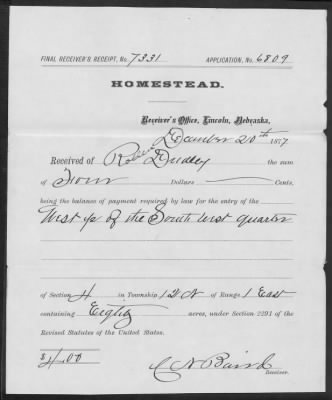 FINAL RECEIVER'S RECEIPT, No. 7331 APPLICATION, No. 6809
HOMESTEAD.
Receiver's Office, Lincoln, Nebraska,
December 20th 1877
Received of Robert Dudley the sum
of Four Dollars Cents,
being the balance of payment required by law for the entry of the
West ½ of the South West quarter
of Section 4 in Township 12 N of Range 1 East
containing Eighty acres, under Section 2291 of the
Revised Statutes of the United States.
$4.00
C N Baird
Receiver.